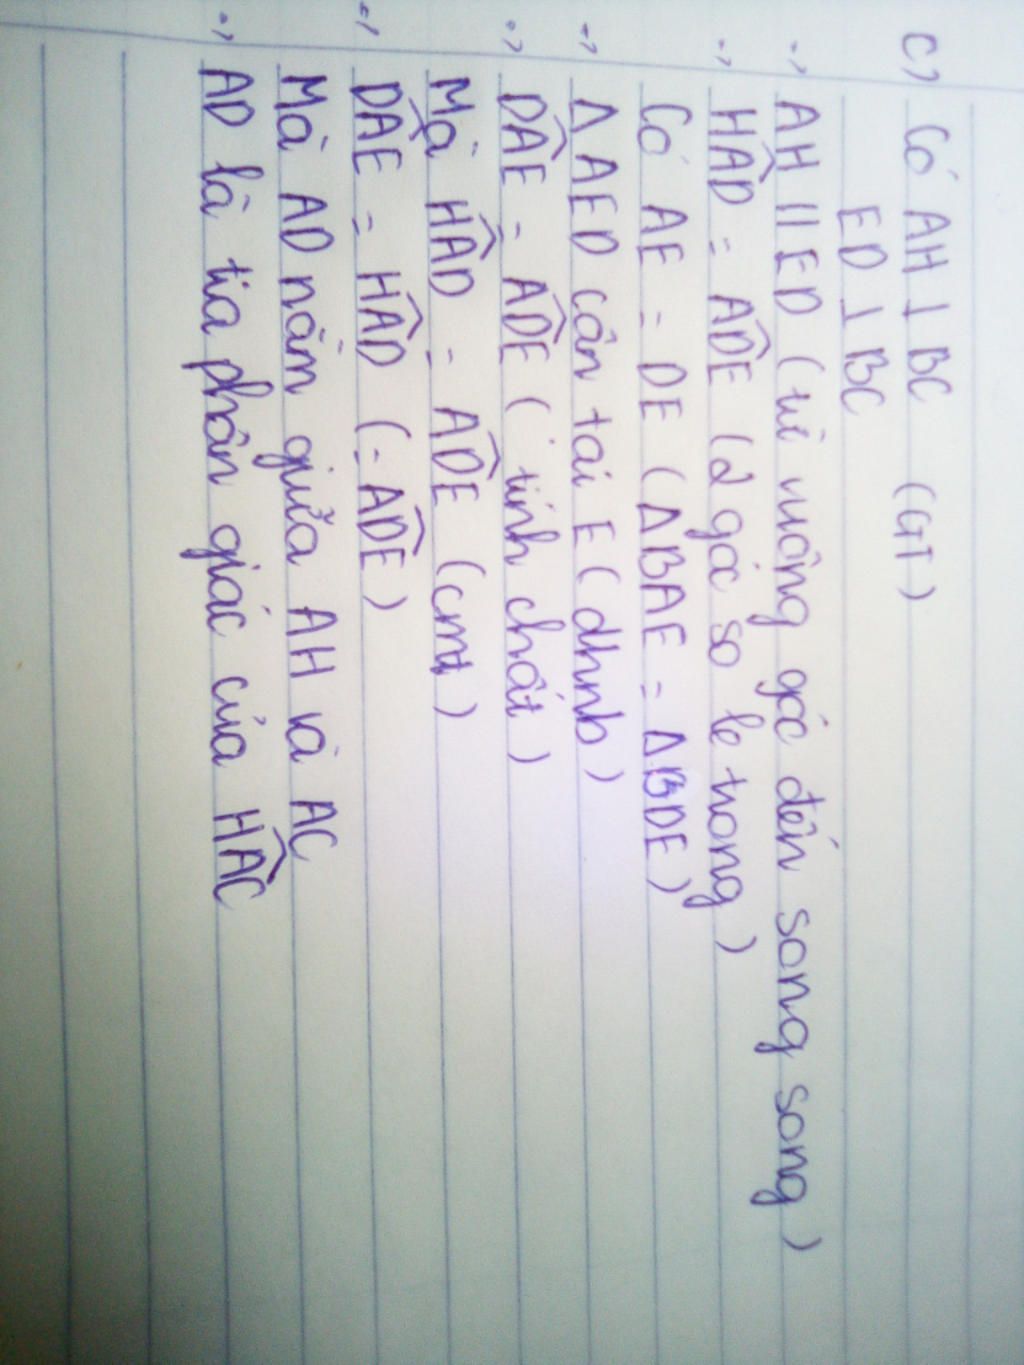 c, Có AH ⊥ BC (GT)
ED ⊥ BC
=, AH // ED (từ vuông góc đến song song)
=, HÂD = AD̂E (2 góc so le trong)
Có AE = DE (Δ BAE = Δ BDE)
=, Δ AED cân tại E (dhnb)
=, DÂE = AD̂E (tính chất)
Mà HÂD = AD̂E (cmt)
=, DÂE = HÂD (= AD̂E)
Mà AD nằm giữa AH và AC
=, AD là tia phân giác của HÂC